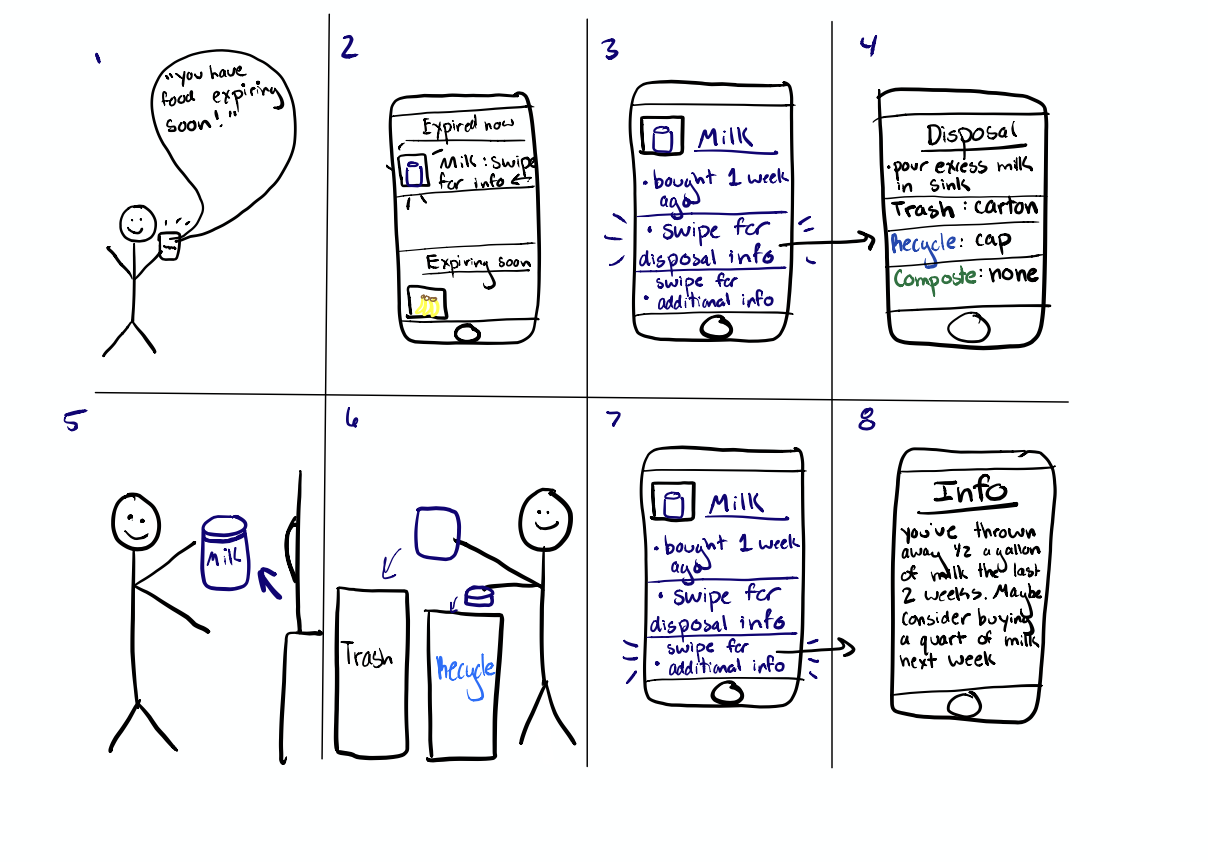 1
"You have
food expiring
soon!"
2
Expired now
Milk : swipe
for info ←
Expiring soon
3
Milk
• bought 1 week
ago
• swipe for
disposal info
swipe for
• additional info
4
Disposal
• pour exess milk
in sink
Trash : carton
Recycle: cap
Composte: none
5
Milk
6
Trash
Recycle
7
Milk
• bought 1 week
ago
• swipe for
disposal info
swipe for
• additional info
8
Info
you've thrown
away 1/2 a gallon
of milk the last
2 weeks. Maybe
consider buying
a quart of milk
next week